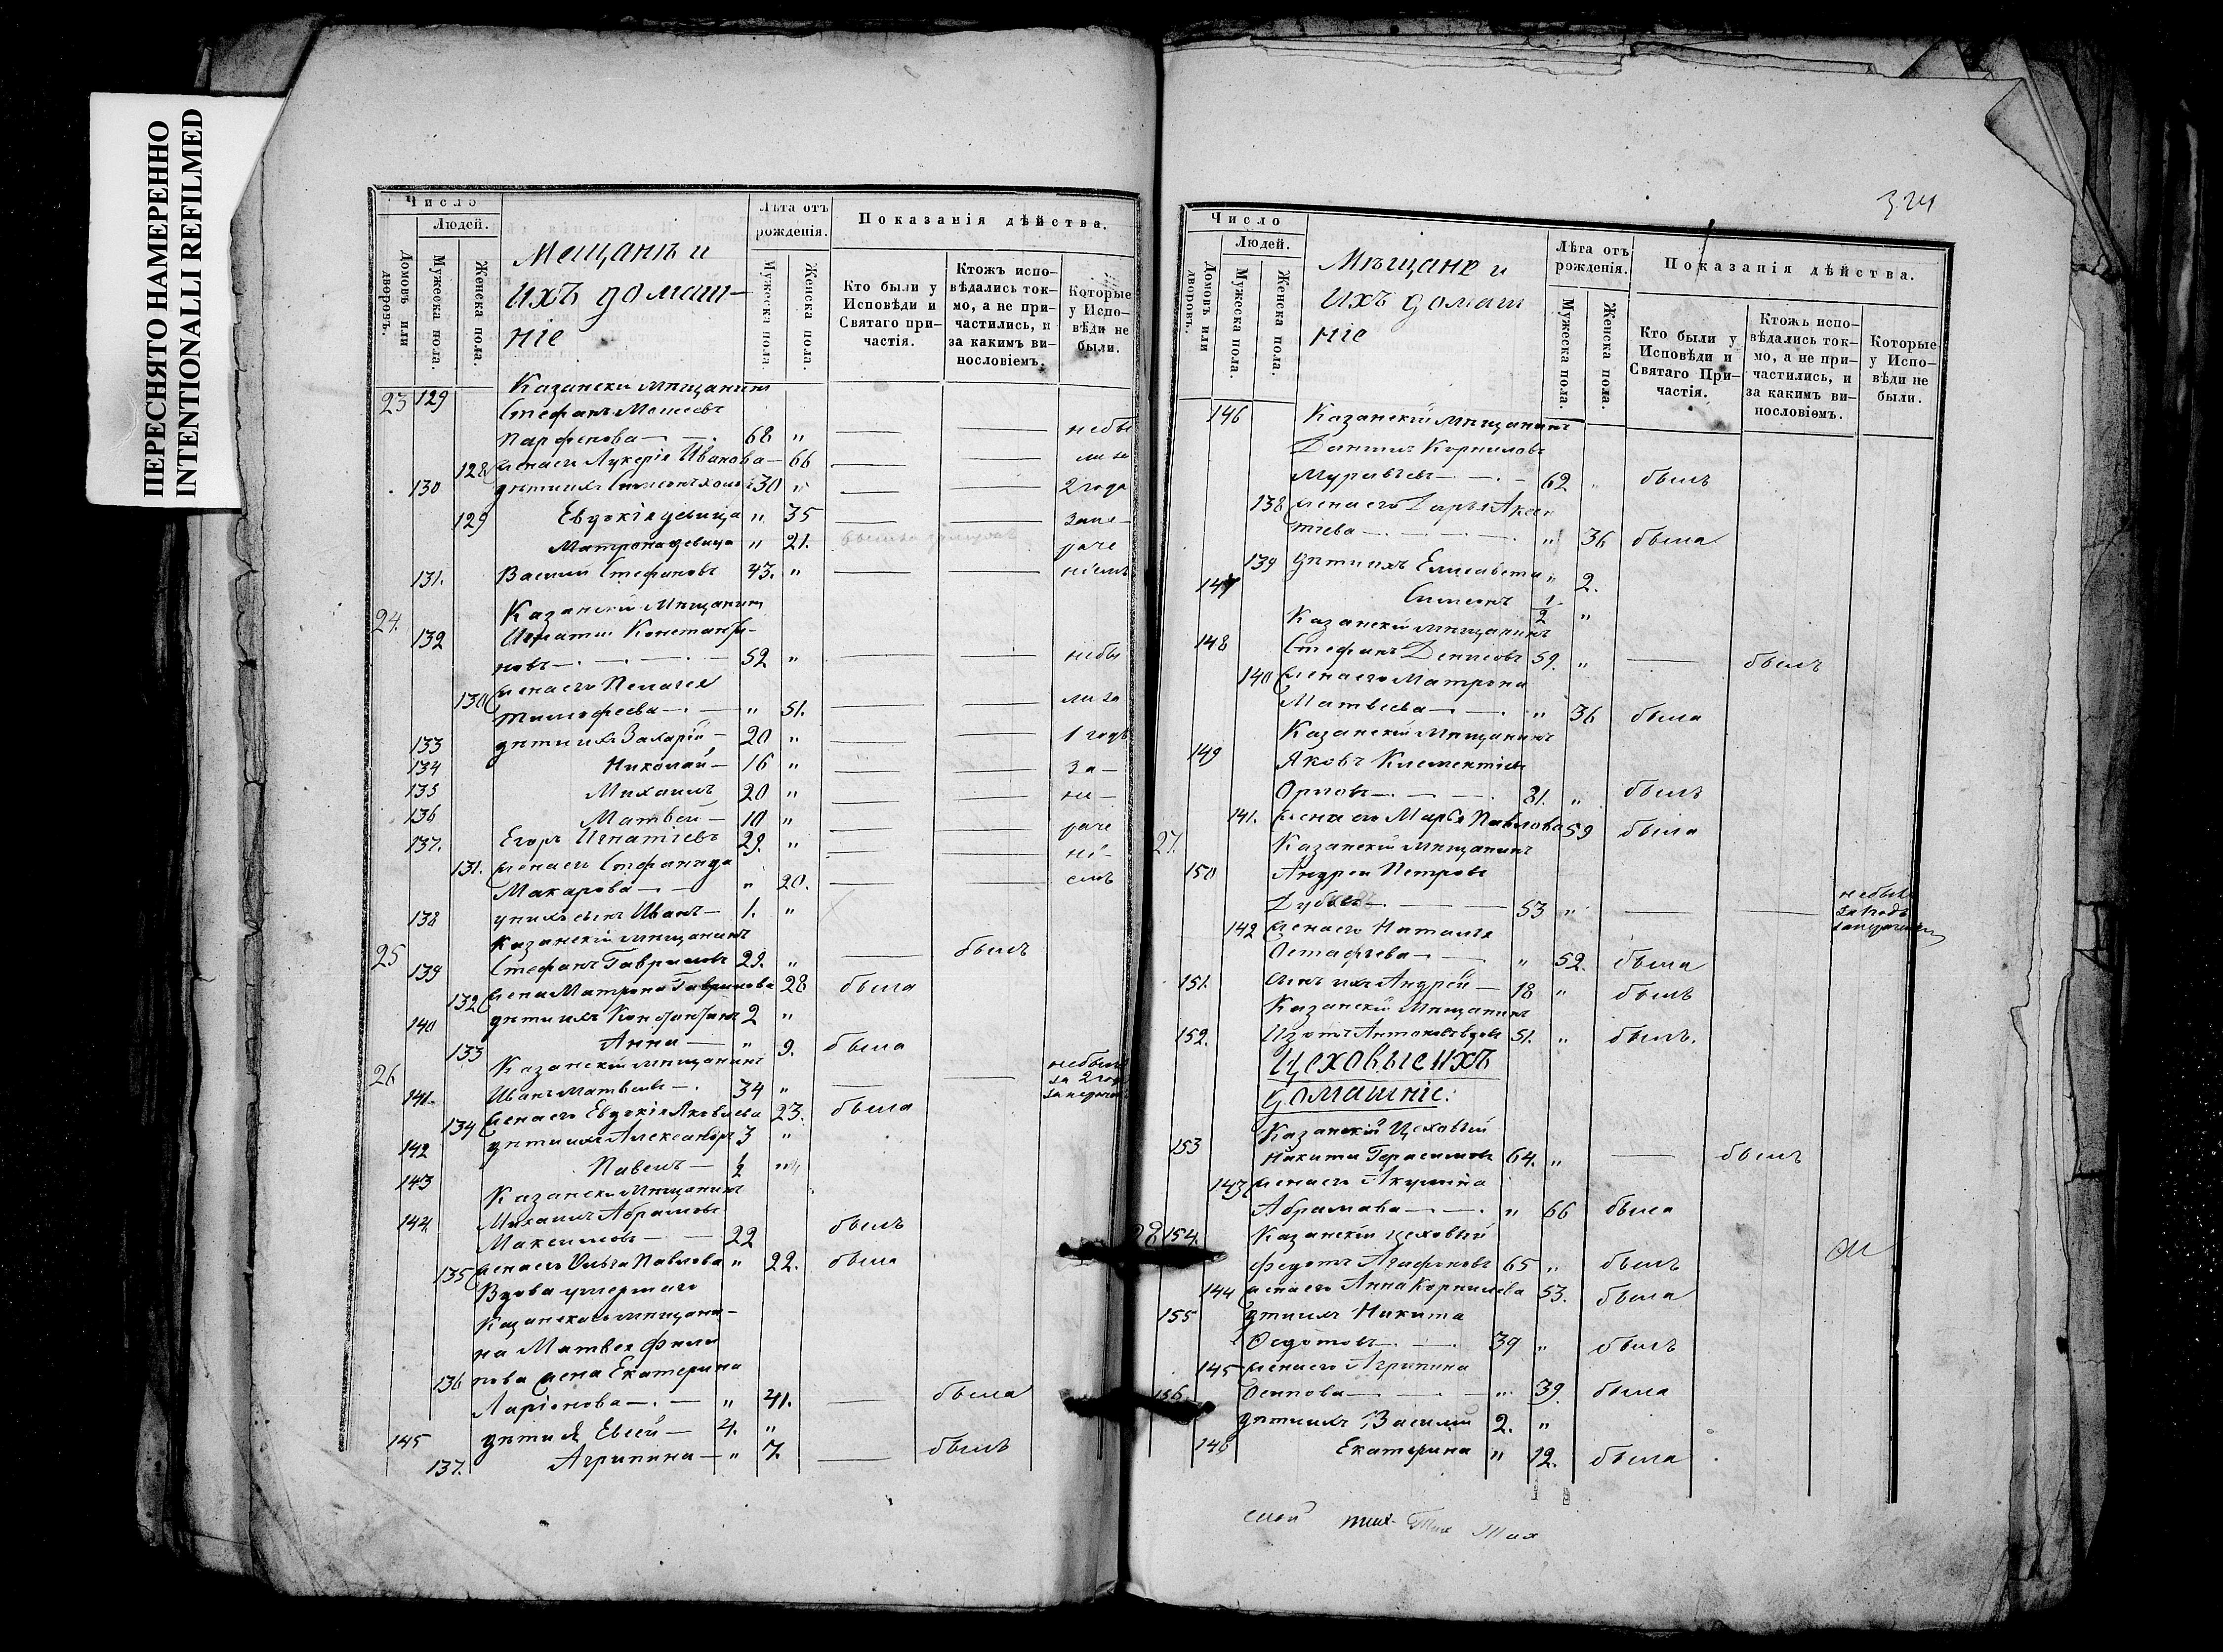 ПЕРЕСНЯТО НАМЕРЕННО
INTENTIONALLI REFILMED
Число
Людей.
Домовъ или дворовъ.
Мужеска пола.
Женска пола.
Мещанъ и
ихъ домаш-
ніе
Лѣта отъ рожденія.
Мужеска пола
Женска пола.
Показанія дѣйства.
Кто были у Исповѣди и Святаго при-частія.
Ктожъ испо-вѣдались ток-мо, а не при-частились, и за какимъ ви-нословіемъ.
Которые у Испо-вѣди не были.
23 129 Казански мѣщанинъ
Стефанъ Моисеевъ
Парфенова 68 " небы
128 жена его Лукерія Иванова 66 ли за
130 дѣти ихъ 30 " 2 года
129 Евдокія девица " 35 за не-
Матрона девица " 21. раче
131. Василий Стефановъ 43. " ніемъ
24. Казански Мѣщанинъ
132 Игнатий Константи-
новъ 52 " небы
130 жена его Пелагея
Тимофеева " 51. ли за
133 дѣти ихъ Захарій 20 " 1 годъ
134 Николай 16 " за
135 Михаилъ 20 " не
136 Матвей 10 " раче
137. Егоръ Игнатіевъ 29. " ні-
131. жена его Стефанида емъ
Макарова " 20.
138 у нихъ сынъ Иванъ 1. "
Казанскій мѣщанинъ
25 139 Стефанъ Гавриловъ 29. " былъ
132 жена Матрона Гаврилова 28 была
140 дѣти ихъ Константинъ 2 "
133 Анна " 9. была
26 Казанскій мѣщанинъ
141. Иванъ Матвеевъ 34 " небылъ за 2 года
134 жена его Евдокія Яковлева 23. была
142 дѣти ихъ Александръ 3 "
143 Павелъ 1/2 "
Казански Мѣщанинъ
144 Михаилъ Абрамовъ
Максимовъ 22 былъ
135 жена его Ольга Павлова " 22. была
Вдова умершаго
Казанскаго мѣщани-
на Матвея Фили
136 пова жена Екатерина
Ларіонова " 41. была
145 дѣти ея Евсей 4. "
137. Агрипина " 7. былъ
324
Число
Людей.
Домовъ или дворовъ.
Мужеска пола.
Женска пола.
Мѣщане и
ихъ домаш
ніе
Лѣта отъ рожденія.
Мужеска пола.
Женска пола.
Показанія дѣйства.
Кто были у Исповѣди и Святаго При-частія.
Ктожъ испо-вѣдались ток-мо, а не при-частились, и за какимъ ви-нословіемъ.
Которые у Испо-вѣди не были.
146 Казанскій мѣщанинъ
Даниилъ Корниловъ
Муравьевъ 62 " былъ
138 жена его Дарья Аксен
тіева " 36 была
139 дѣти ихъ Елисавета " 2.
147 Симеонъ 1/2 "
Казанскій мѣщанинъ
148 Стефанъ Денисовъ 59. " былъ
140 жена его Матрона
Матвеева " 36 была
Казанскій Мѣщанинъ
149 Яковъ Клементіевъ
Орловъ 31. " былъ
141. жена его Марья Павлова 59 была
27. Казанскій Мѣщанинъ
150 Андрей Петровъ
53 " небылъ
142 жена его Наталья
Остафьева " 52. была
151. сынъ ихъ Андрей 18 " былъ
Казанскій Мѣщанинъ
152. Изотъ 51. " былъ.
Цеховые ихъ
домашніе.
Казанскій Цеховый
153 Никита Герасимовъ 64. " былъ
143 жена его Акулина
Абрамова " 66 была
28 154. Казанскій цеховый
Федотъ Агафоновъ 65 " былъ
144 жена его Анна Корнилова 53. была
155 дѣти ихъ Никита
Федотовъ 39 " былъ
145 жена его Агрипина
Осипова " 39. была
156 дѣти ихъ Василій 2. "
146 Екатерина " 12. была